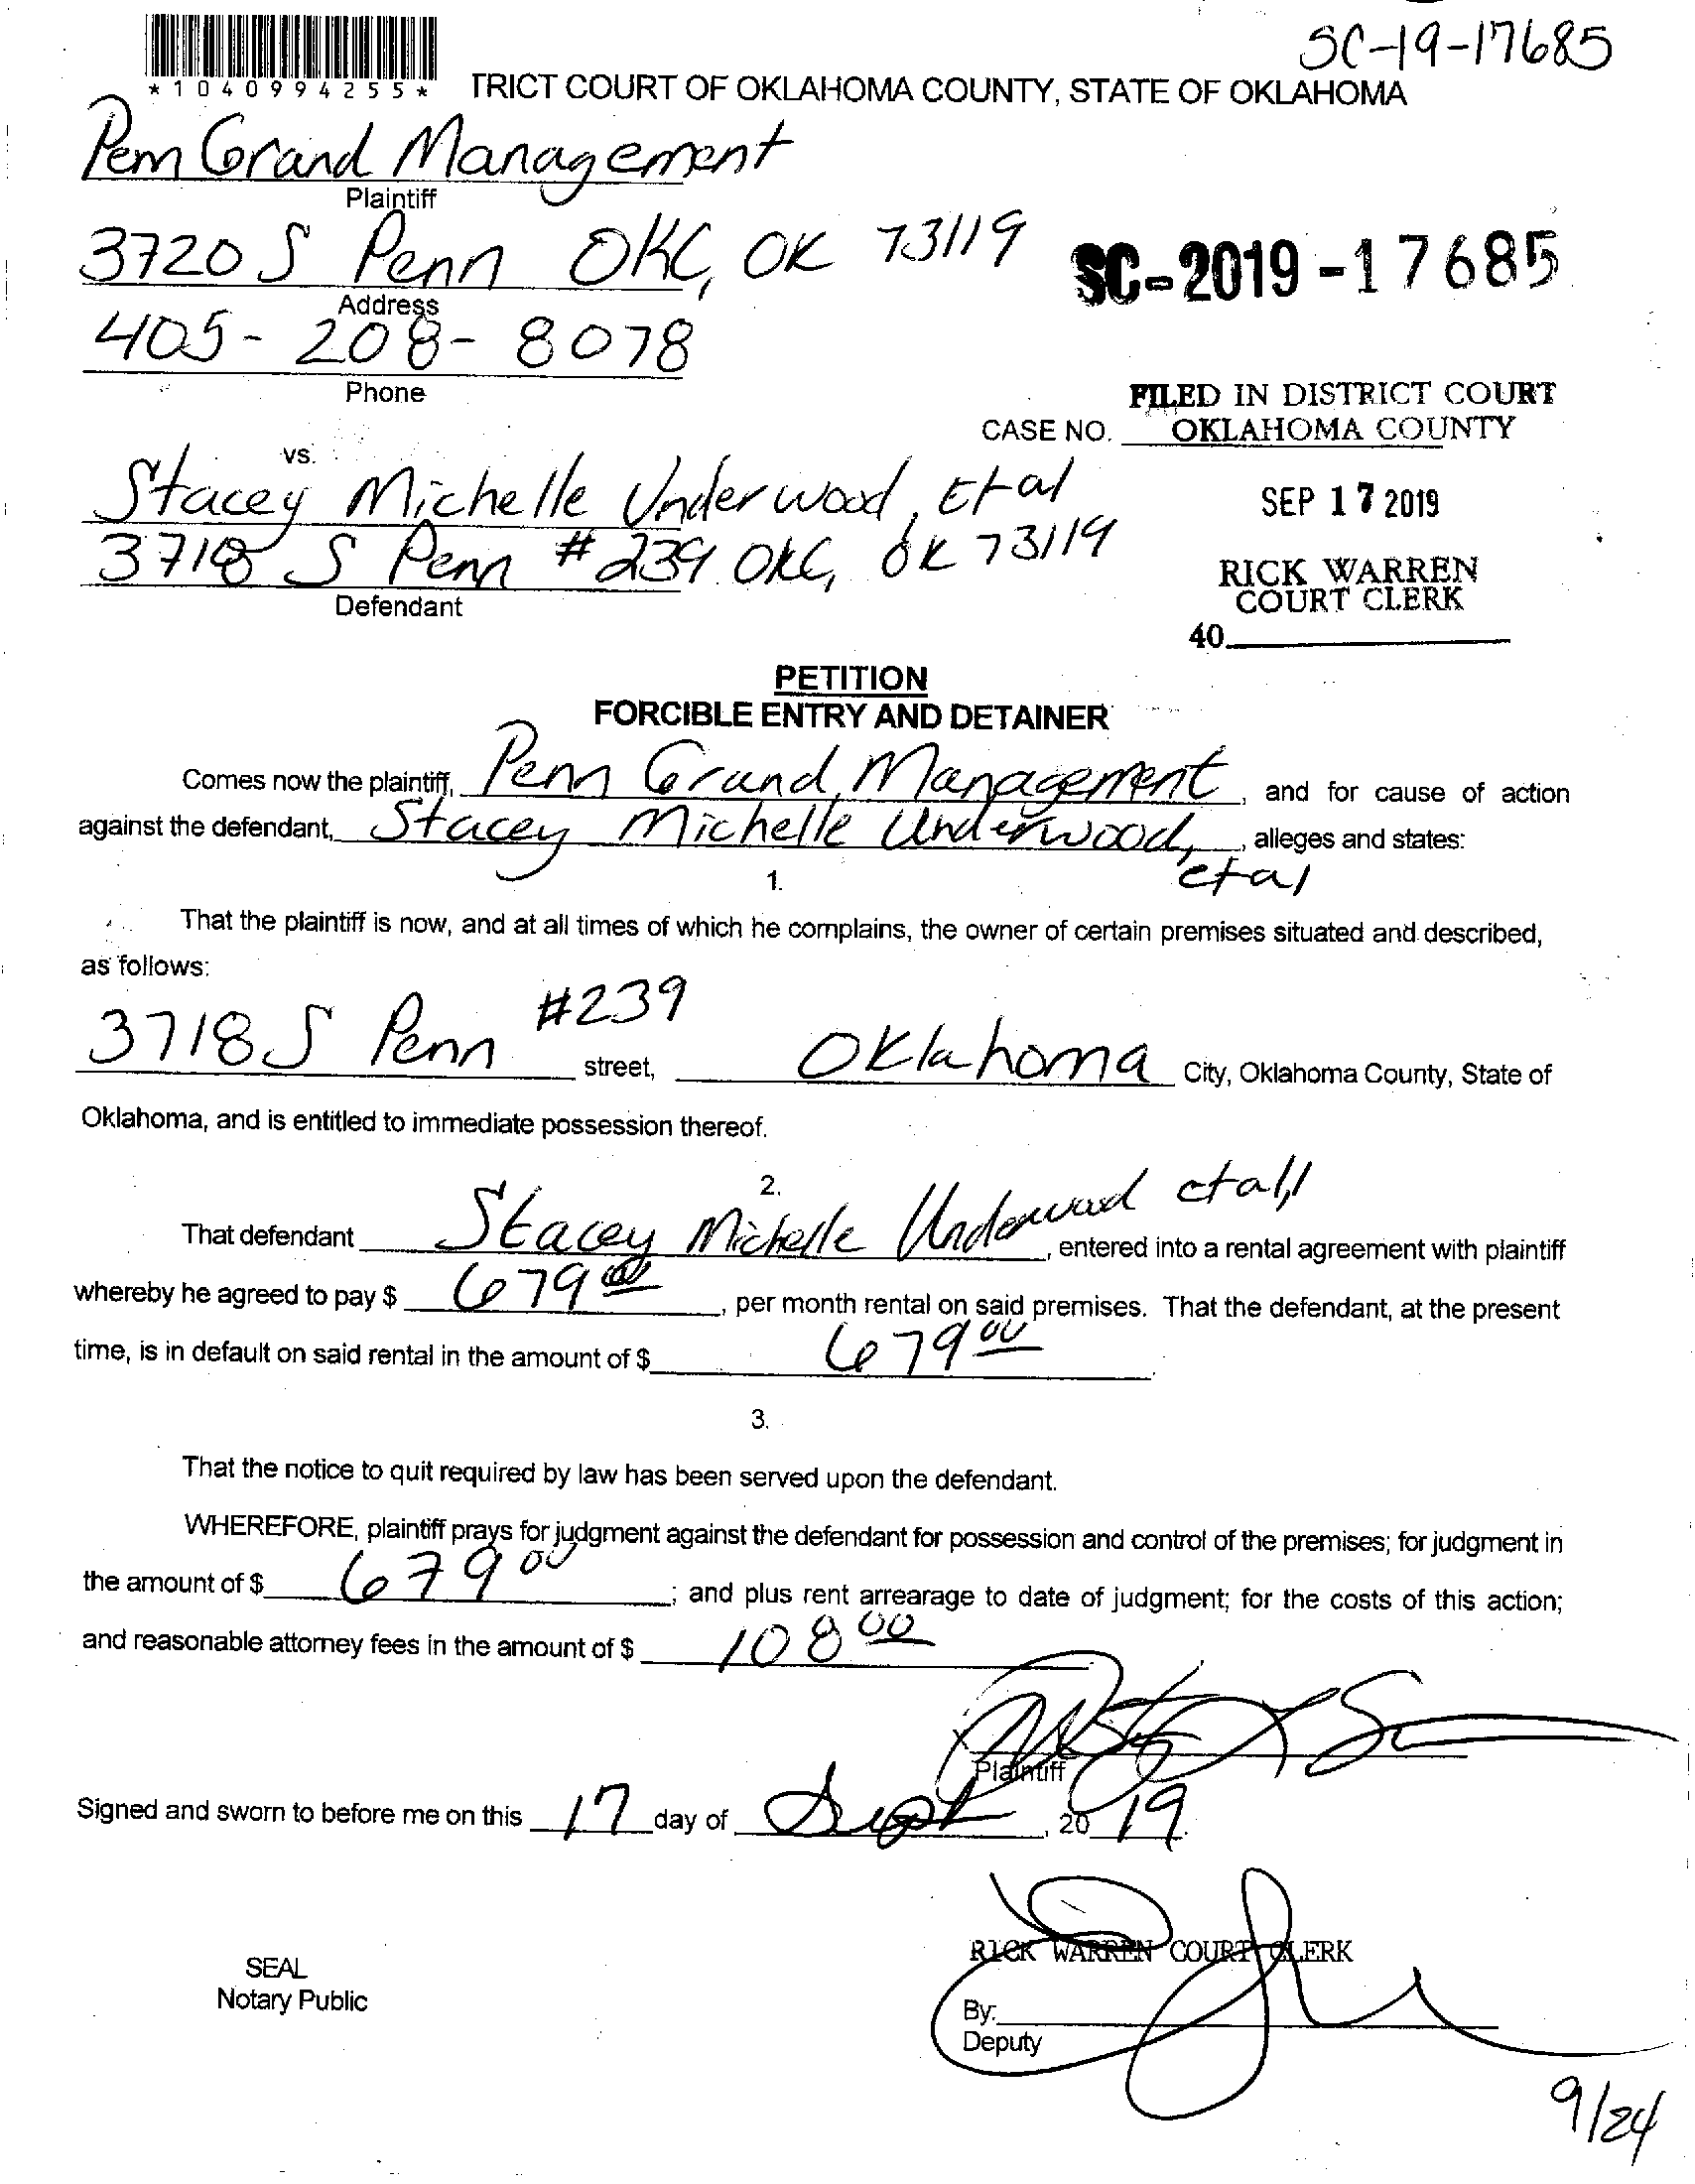 SC-19-17685
*1040994255*
TRICT COURT OF OKLAHOMA COUNTY, STATE OF OKLAHOMA
Penn Grand Management
Plaintiff
3720 S Penn OKC, OK 73119
SC-2019-17685
Address
405-208-8078
Phone
FILED IN DISTRICT COURT
CASE NO. OKLAHOMA COUNTY
vs.
Stacey Michelle Underwood, Etal
SEP 17 2019
3718 S Penn #239 OKC, OK 73119
RICK WARREN
COURT CLERK
Defendant
40
PETITION
FORCIBLE ENTRY AND DETAINER
Comes now the plaintiff, Penn Grand Management, and for cause of action
against the defendant, Stacey Michelle Underwood, etal, alleges and states:
1.
That the plaintiff is now, and at all times of which he complains, the owner of certain premises situated and described,
as follows:
3718 S Penn #239 street, Oklahoma City, Oklahoma County, State of
Oklahoma, and is entitled to immediate possession thereof.
2.
That defendant Stacey Michelle Underwood etall, entered into a rental agreement with plaintiff
whereby he agreed to pay $ 679 00, per month rental on said premises. That the defendant, at the present
time, is in default on said rental in the amount of $ 679 00
3.
That the notice to quit required by law has been served upon the defendant.
WHEREFORE, plaintiff prays for judgment against the defendant for possession and control of the premises; for judgment in
the amount of $ 679 00; and plus rent arrearage to date of judgment; for the costs of this action;
and reasonable attorney fees in the amount of $ 108 00
Plaintiff
Signed and sworn to before me on this 17 day of Sept, 20 19.
RICK WARREN COURT CLERK
SEAL
Notary Public
By:
Deputy
9/24